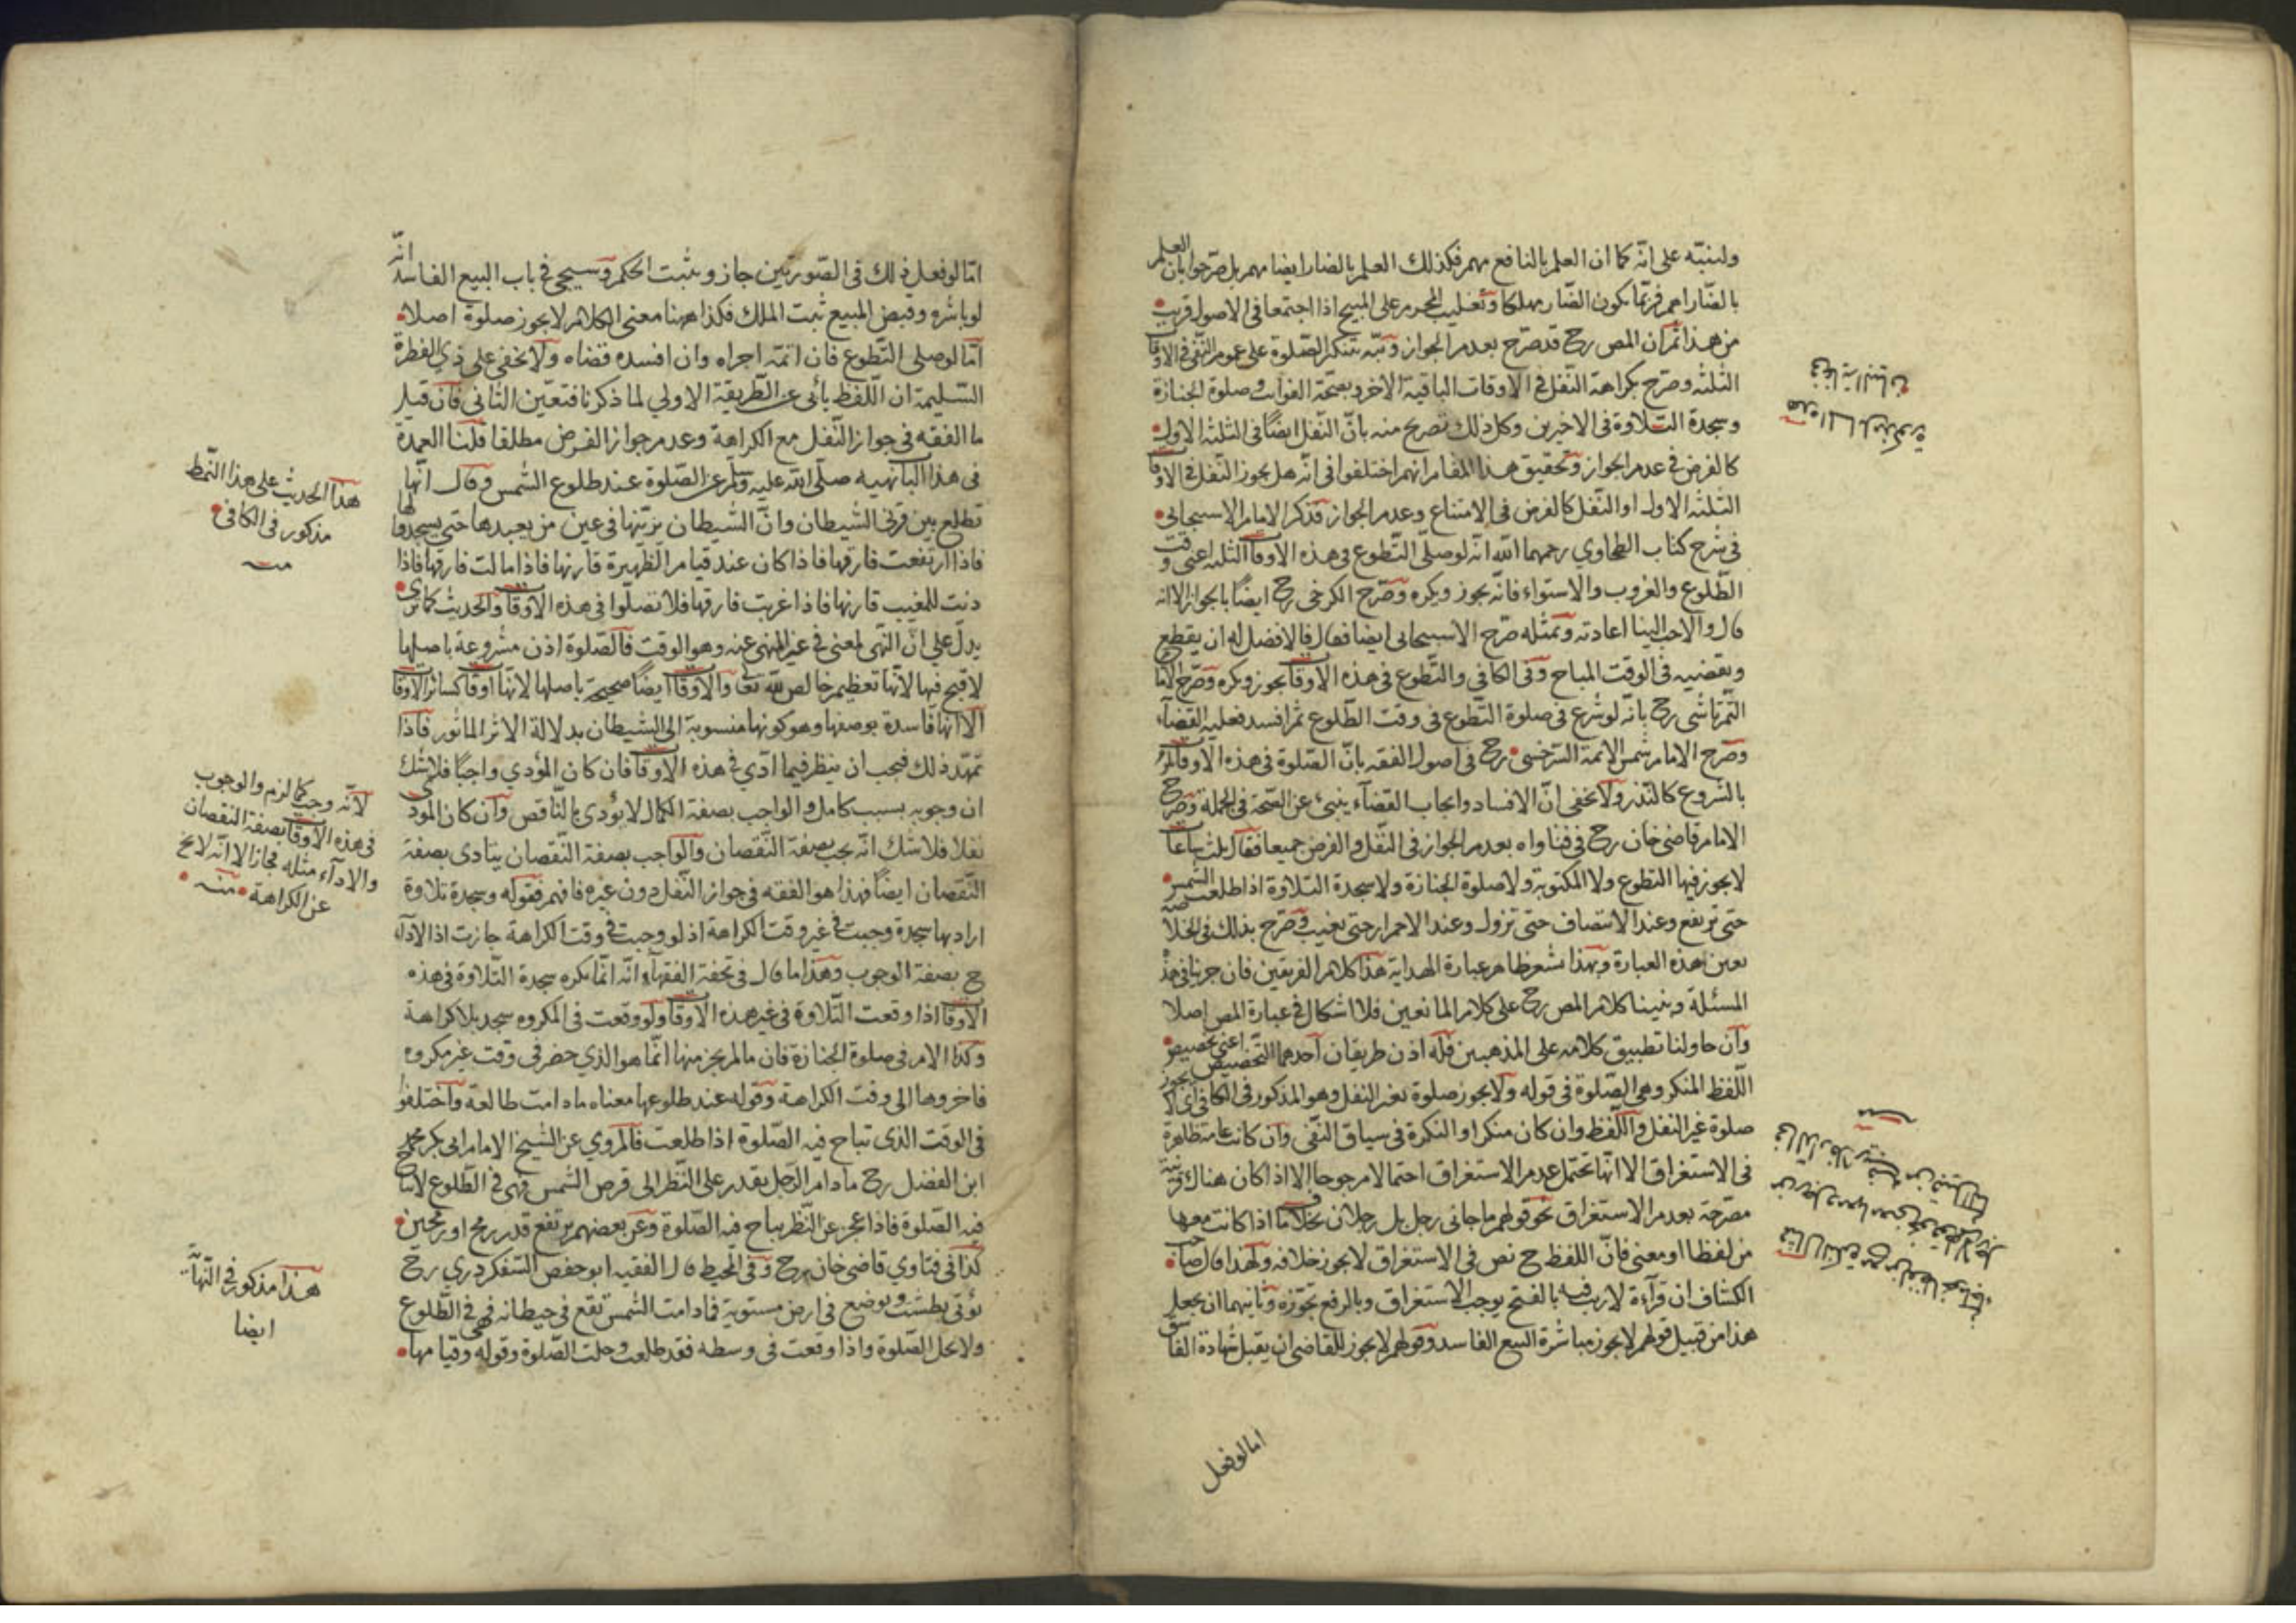 ولينبّه على انّه كما ان العلم بالنافع مهم فكذلك العلم بالضار ايضا مهم بل صرّحوا بان العلم
بالضّار اهم فربّما يكون الضّار مهلكا وتغليب المحرم على المبيح اذا اجتمعا فى الاصول قريب
من هذا ثم ان المص رح قد صرّح بعدم الجواز ونبّه بتنكير الصّلوة على عموم النّفى فى الاوقا
الثلثه وصرّح بكراهة النّفل فى الاوقات الباقية الاخر وبصحّة الفوائت وصلوة الجنازة
وسجدة التّلاوة فى الاخيرين وكل ذلك تصريح منه بانّ النّفل ايضًا فى الثلثه الاول
كالفرض فى عدم الجواز وتحقيق هذا المقام انهم اختلفوا فى انّه هل يجوز النّفل فى الاوقا
الثلثه الاول او النّفل كالفرض فى الامتناع وعدم الجواز فذكر الامام الاسبيجابى
فى شرح كتاب الطحاوي رحمهما الله انّه لو صلّى التّطوع فى هذه الاوقا الثلثه اعنى وقت
الطّلوع والغروب والاستواء فانّه يجوز ويكره وصرّح الكرخى رح ايضًا بالجواز الا انه
قال والاحب الينا اعادته وبمثله صرّح الاسبيجابى ايضا فقال فالافضل له ان يقطع
ويقضيه فى الوقت المباح وفى الكافى والتّطوع فى هذه الاوقا يجوز ويكره وصرّح الاما
التّمرتاشى رح بانّه لو شرع فى صلوة التّطوع فى وقت الطّلوع ثم افسد فعليه القضاء
وصرح الامام شمس الائمة السّرخسى رح فى اصول الفقه بانّ الصّلوة فى هذه الاوقا تلزم
بالشروع كالنّذر ولا يخفى انّ الافساد وايجاب القضآء ينبئ عن الصّحة فى الجملة وصرّح
الامام قاضى خان رح فى فتاواه بعدم الجواز فى النّفل والفرض جميعا فقال ثلث ساعا
لا يجوز فيها التطوع ولا المكتوبة ولا صلوة الجنازة ولا سجدة التلاوة اذا طلعت الشمس
حتى ترتفع وعند الانتصاف حتى تزول وعند الاحمرار حتى تغيب وصرّح بذلك فى الخلاصة
بعين هذه العبارة وبهذا يشعر ظاهر عبارة الهداية هذا كلام الفريقين فان جرينا فى هذه
المسئلة وبنينا كلام المص رح على كلام المانعين فلا اشكال فى عبارة المص اصلا
وان حاولنا تطبيق كلامه على المذهبين فله اذن طريقان احدهما التّخصيص اعنى تخصيص
اللّفظ المنكر وهى الصّلوة فى قوله ولا يجوز صلوة بغير النفل وهو المذكور فى الكافى اى لا يجوز
صلوة غير النفل واللّفظ وان كان منكرا والنكرة فى سياق النّفى وان كانت عامة ظاهرة
فى الاستغراق الا انّها تحتمل عدم الاستغراق احتمالا مرجوحا الا اذا كان هناك قرينة
مصرّحة بعدم الاستغراق نحو قولهم ما جانى رجل بل رجلان بخلاف ما اذا كانت معها
من لفظا او معنى فانّ اللفظ ح نص فى الاستغراق لا يجوز خلافه ولهذا قال صاحب
الكشاف ان قرآءة لا ريب فيه بالفتح يوجب الاستغراق وبالرفع تجوّزه وثانيهما ان يجعل
هذا من قبيل قولهم لا يجوز مباشرة البيع الفاسد وقولهم لا يجوز للقاضى ان يقبل شهادة الفاسق
اما لو فعل
هذه المسائل مذكورة
فى
امّا لو فعل ذلك فى الصّورتين جاز ويثبت الحكم وسيجئ فى باب البيع الفاسد انّه
لو باشره وقبض المبيع ثبت الملك فكذا ههنا معنى الكلام لا يجوز صلوة اصلا
امّا لو صلى التّطوع فان اتمّه اجراه وان افسده قضاه ولا يخفى على ذي الفطرة
السّليمة ان اللّفظ يأبى عن الطّريقة الاولي لما ذكرنا فتعيّن الثانى فان قيل
ما الفقه فى جواز النّفل مع الكراهة وعدم جواز الفرض مطلقا قلنا العمدة
فى هذا الباب نهيه صلّى الله عليه وسلّم عن الصّلوة عند طلوع الشّمس وقال انّها
تطلع بين قرنى الشّيطان وانّ الشّيطان يزيّنها فى عين من يعبدها حتى يسجدوا لها
فاذا ارتفعت فارقها فاذا كان عند قيام الظّهيرة قارنها فاذا مالت فارقها فاذا
دنت للمغيب قارنها فاذا غربت فارقها فلا تصلّوا فى هذه الاوقا والحديث كما ترى
يدلّ على انّ النّهى لمعنى فى غير المنهى عنه وهو الوقت فالصّلوة اذن مشروعة باصلها
لا قبح فيها لانّها تعظيم خالص لله تعا والاوقا ايضًا صحيحة باصلها لانّها اوقا كسائر الاوقا
الا انّها فاسدة بوصفها وهو كونها منسوبة الى الشّيطان بدلالة الاثر الماثور فاذا
تمهّد ذلك فيجب ان ينظر فيما ادّي فى هذه الاوقا فان كان المؤدي واجبًا فلا شك
ان وجوبه بسبب كامل والواجب بصفة الكمال لا يؤدى بالنّاقص وان كان المؤدى
نفلا فلا شك انّه يجب بصفة النّقصان والواجب بصفة النّقصان يتادى بصفة
النّقصان ايضًا فهذا هو الفقه فى جواز النّفل دون غيره فافهم فقوله وسجدة تلاوة
اراد بها سجدة وجبت فى غير وقت الكراهة اذ لو وجبت فى وقت الكراهة جازت اذا الادآء
ح بصفة الوجوب وهذا ما قال فى تحفة الفقهآء انّه انّما يكره سجدة التّلاوة فى هذه
الاوقا اذا وقعت التّلاوة فى غير هذه الاوقا ولو وقعت فى المكروه سجد بلا كراهة
وكذا الامر فى صلوة الجنازة فان ما لم يجز منها انّما هو الذي حضر فى وقت غير مكروه
فاخروها الى وقت الكراهة وقوله عند طلوعها معناه ما دامت طالعة واختلفوا
فى الوقت الذى تباح فيه الصّلوة اذا طلعت فالمروي عن الشّيخ الامام ابى بكر محمد
ابن الفضل رح ما دام الرّجل يقدر على النّظر الى قرص الشّمس فهى فى الطّلوع لا تباح
فيه الصّلوة فاذا عجز عن النّظر يباح فيه الصّلوة وعن بعضهم يرتفع قدر رمح او رمحين
كذا فى فتاوي قاضى خان رح وفى المحيط قال الفقيه ابو حفص السّفكردري رح
يؤتى بطشت ويوضع فى ارض مستوية فما دامت الشّمس تقع فى حيطانه فهى فى الطّلوع
ولا يحل الصّلوة واذا وقعت فى وسطه فقد طلعت وحلت الصّلوة وقوله وقيامها
هذا الحديث على هذا النّمط
مذكور فى الكافى
منه
لانّه وجب كما لزم والوجوب
فى هذه الاوقا بصفة النقصان
والادآء مثله فجاز الا انّه لا يخ
عن الكراهة منه
هذا مذكور فى النّهاية
ايضا